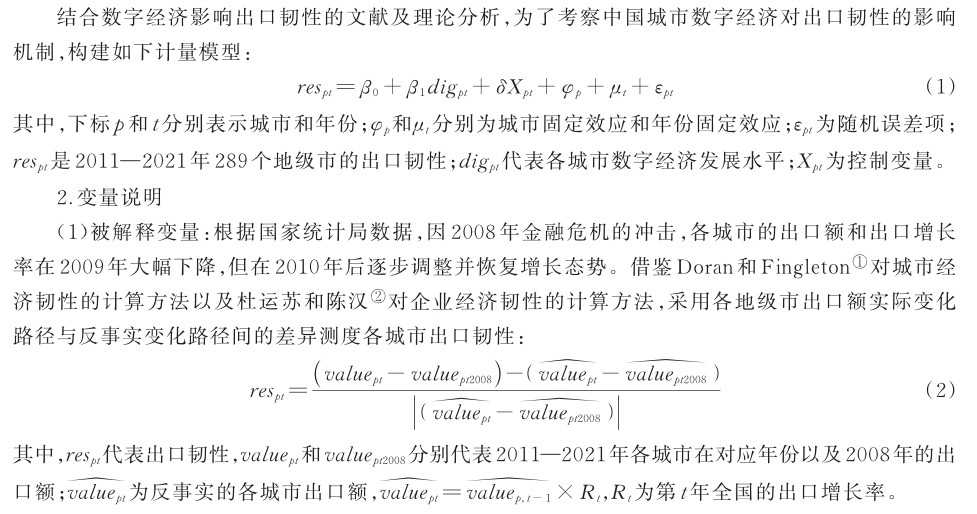 结合数字经济影响出口韧性的文献及理论分析,为了考察中国城市数字经济对出口韧性的影响
机制,构建如下计量模型:
res_{pt}=β_0+β_1dig_{pt}+δX_{pt}+φ_p+μ_t+ε_{pt} (1)
其中,下标p和t分别表示城市和年份;φ_p和μ_t分别为城市固定效应和年份固定效应;ε_{pt}为随机误差项;
res_{pt}是2011—2021年289个地级市的出口韧性;dig_{pt}代表各城市数字经济发展水平;X_{pt}为控制变量。
2.变量说明
(1)被解释变量:根据国家统计局数据,因2008年金融危机的冲击,各城市的出口额和出口增长
率在2009年大幅下降,但在2010年后逐步调整并恢复增长态势。借鉴Doran和Fingleton①对城市经
济韧性的计算方法以及杜运苏和陈汉②对企业经济韧性的计算方法,采用各地级市出口额实际变化
路径与反事实变化路径间的差异测度各城市出口韧性:
res_{pt}=\frac{(value_{pt}-value_{pt2008})-(\widehat{value_{pt}}-\widehat{value_{pt2008}})}{|(\widehat{value_{pt}}-\widehat{value_{pt2008}})|} (2)
其中,res_{pt}代表出口韧性,value_{pt}和value_{pt2008}分别代表2011—2021年各城市在对应年份以及2008年的出
口额;\widehat{value_{pt}}为反事实的各城市出口额,\widehat{value_{pt}}=\widehat{value_{p,t-1}}×R_t,R_t为第t年全国的出口增长率。